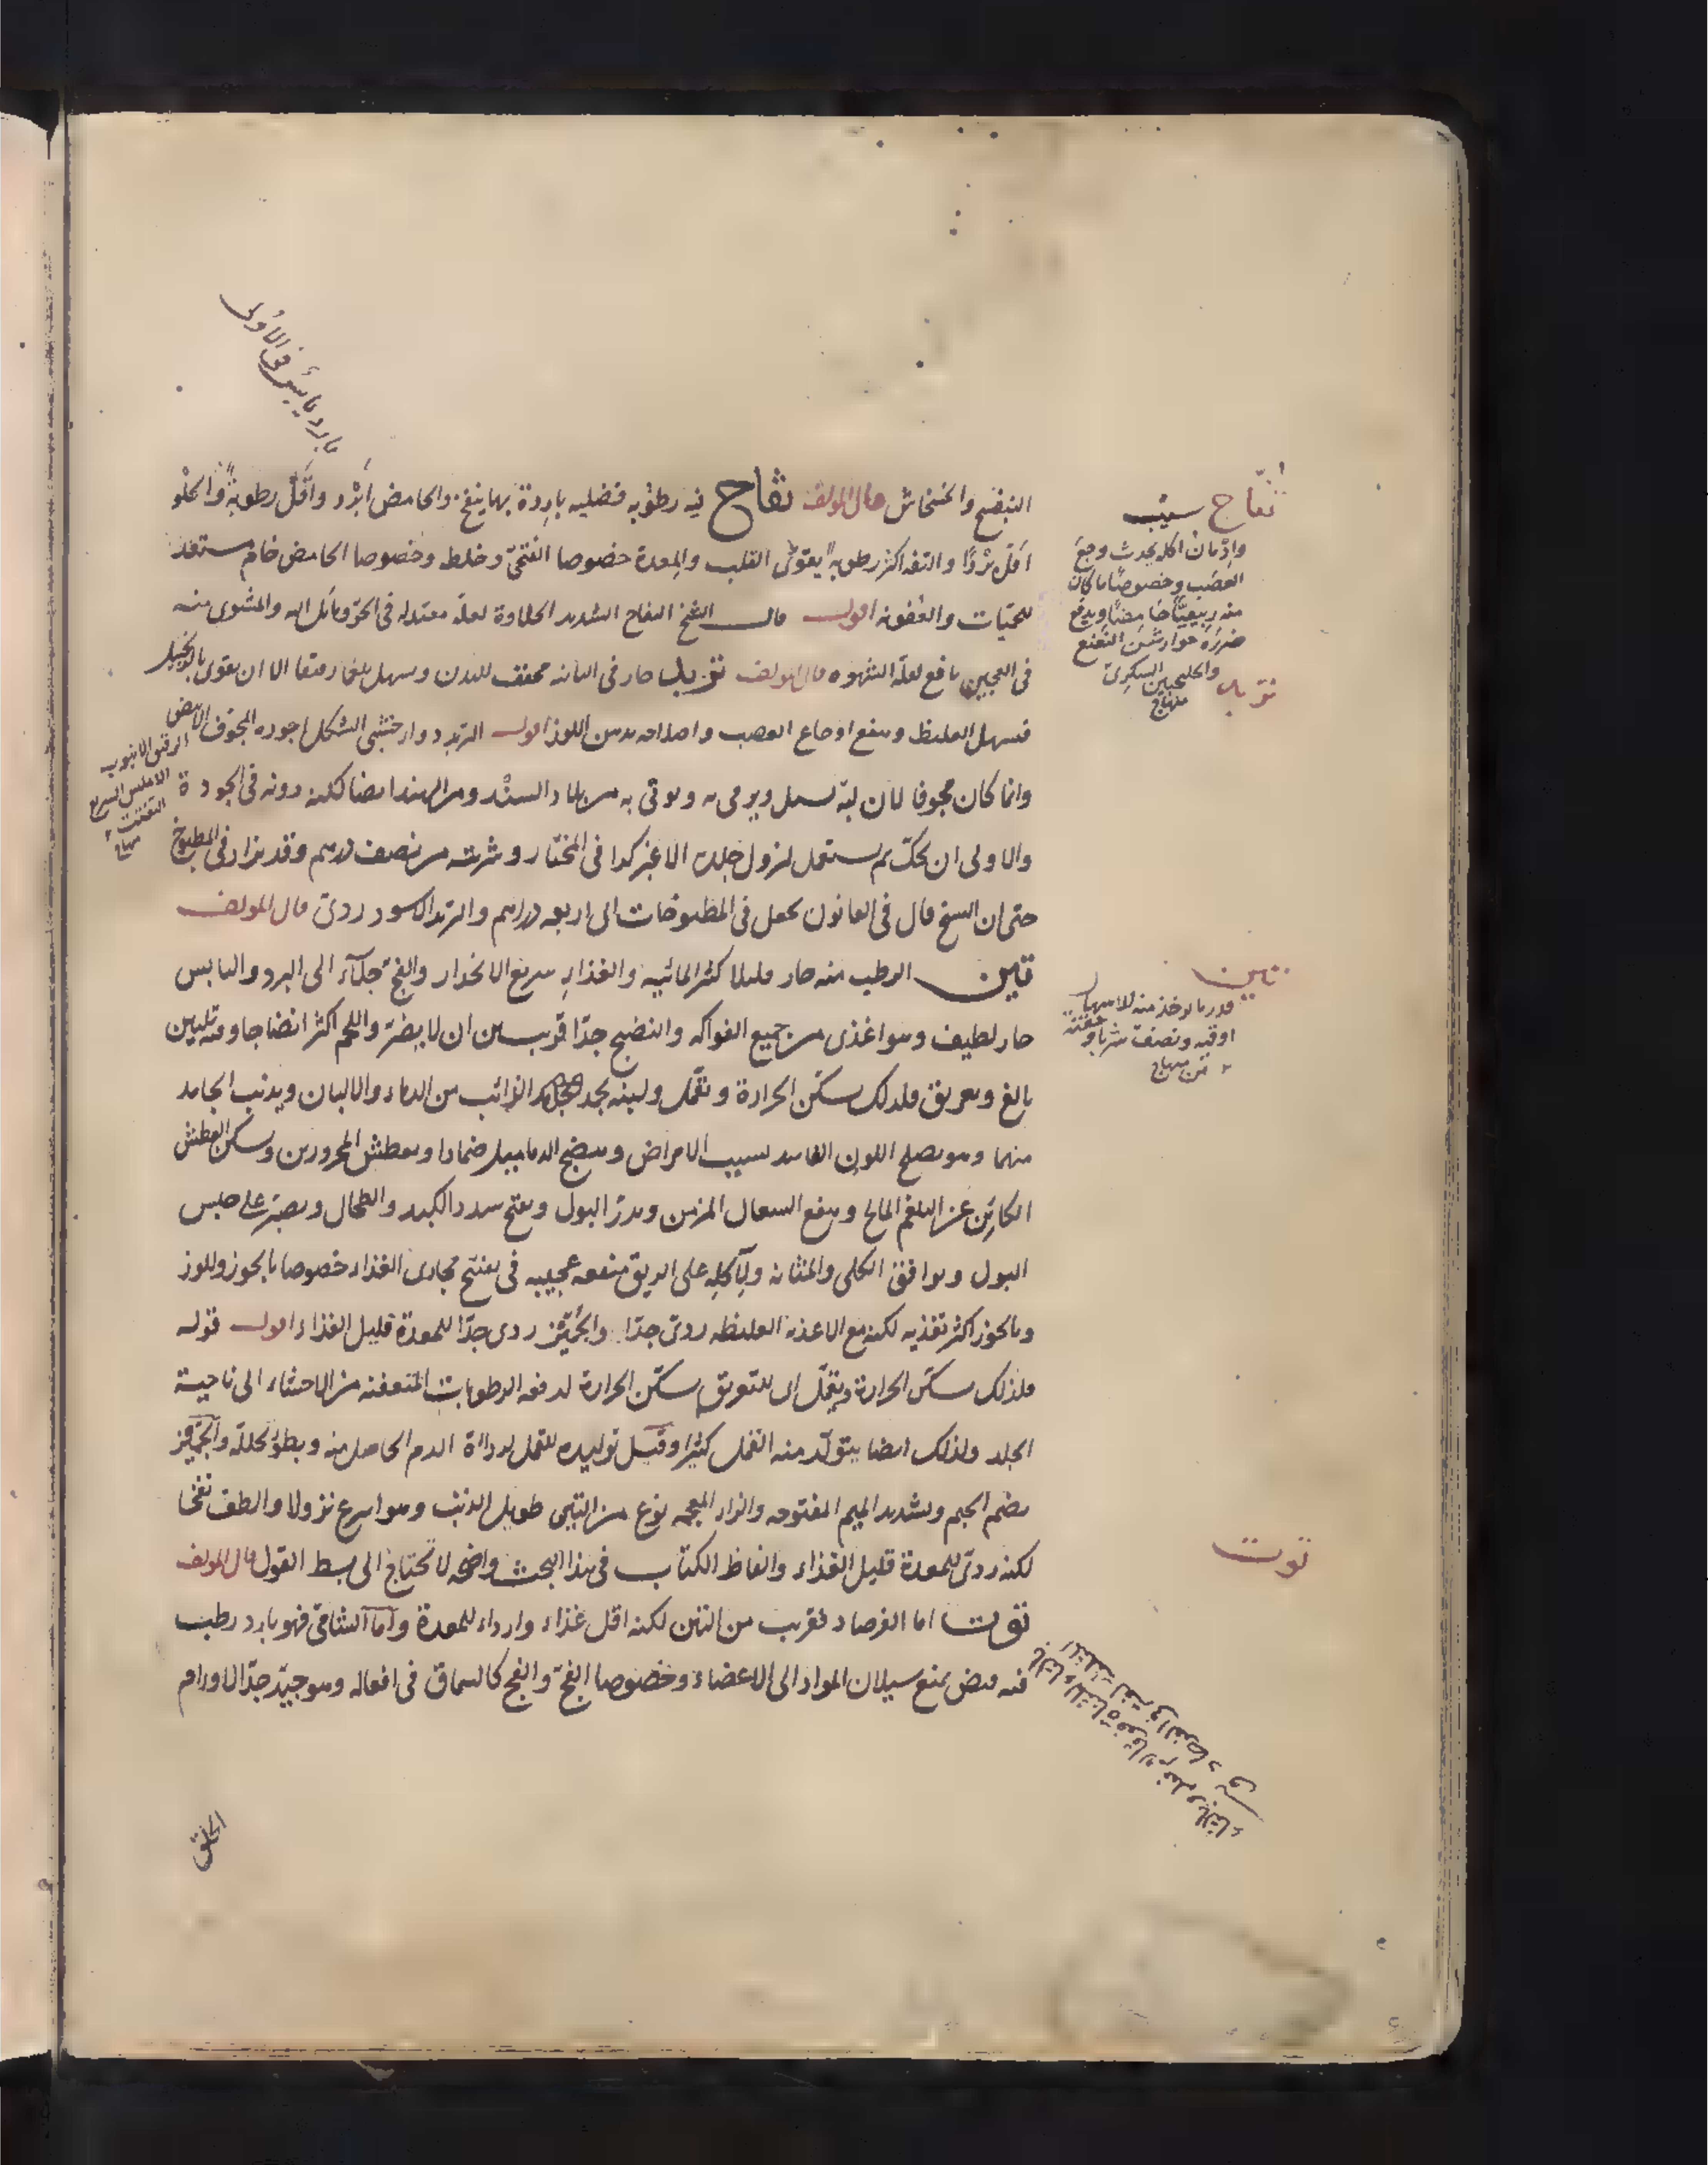 البنفسج والخشخاش قال المولف تفاح فيه رطوبه فضليه باردة بها ينفخ والحامض ابرد واقل رطوبة والحلو
اقل بردا والتفه اكثر رطوبة يقوى القلب والمعدة خصوصا الفتحى وخلطه وخصوصا الحامض خام مستعد
للحميات والعفونه اقول قال الشيخ التفاح الشديد الحلاوة لعله معتدله فى الحر ومائل اليه والمشوى منه
فى العجين نافع لقلة الشهوه قال المولف تربد حار فى الثانيه مجفف للبدن ويسهل بلغما رقيقا الا ان يقوى بالزنجبيل
فيسهل الغليظ وينفع اوجاع العصب واصلاحه بدهن اللوز اقول التربد دواء خشبى الشكل اجوده المجوف الابيض
وانما كان مجوفا لان لبه يسل ويرمى به ويوتى به من بلاد السند ومن الهند ايضا لكنه دونه فى الجودة
والاولى ان يحك ثم يستعمل لنزول جلده الاغبر كذا فى المختار وشربته من نصف درهم وقد يزاد فى المطبوخ
حتى ان الشيخ قال فى القانون يجعل فى المطبوخات الى اربعه دراهم والتربد الاسود ردى قال المولف
تين الرطب منه حار قليلا كثير المائيه والغذاء سريع الانحدار والفج جلاء الى البرد واليابس
حار لطيف وهو اغذى من جميع الفواكه والنضيج جدا قريب من ان لا يضر واللحم اكثر انضاجا وفيه تليين
بالغ وتعريق فلذلك يسكن الحرارة ويقمل ولبنه يجمد الذائب من الدماء والالبان ويذيب الجامد
منهما وهو يصلح اللون الفاسد بسبب الامراض وينضج الدماميل ضمادا ويعطش المحرورين ويسكن العطش
الكائن عن البلغم المالح وينفع السعال المزمن ويدر البول ويفتح سدد الكبد والطحال ويصبر على حبس
البول ويوافق الكلى والمثانه ولآكله على الريق منفعه عجيبه فى تفتيح مجارى الغذاء خصوصا بالجوز واللوز
وبالجوز اكثر تغذيه لكنه مع الاغذيه الغليظه ردى جدا والجميز ردى جدا للمعدة قليل الغذاء اقول قوله
فلذلك يسكن الحرارة ويقمل اى للتعريق يسكن الحرارة لدفعه الرطوبات المتعفنه من الاحشاء الى ناحية
الجلد ولذلك ايضا يتولد منه القمل كثيرا وقيل توليده للقمل لرداءة الدم الحاصل منه وبطؤ تحلله والجميز
بضم الجيم وتشديد الميم المفتوحه والزاء المعجمه نوع من التين طويل الذنب وهو اسرع نزولا والطف نفخا
لكنه ردى للمعدة قليل الغذاء والفاظ الكتاب فى هذا البحث واضحه لا تحتاج الى بسط القول قال المولف
توت اما الفرصاد فقريب من التين لكنه اقل غذاء وارداء للمعدة واما الشامى فهو بارد رطب
فيه قبض يمنع سيلان المواد الى الاعضاء وخصوصا الفج والفج كالسماق فى افعاله وهو جيد جدا لاورام
الحلق
بارد يابس فى الاولى
تفاح سيب
وادمان اكله يحدث وجع
العصب وخصوصا ما كان
منه ربيعيا حامضا ويدفع
ضرره جوارشن النعنع
والجلنجبين السكرى
منهاج
تربد
الرقيق الانبوب
الاملس السريع
التفتت
منهاج
تين
قدر ما يوخذ منه للاسهال
اوقيه ونصف شربا وحقنة
من منهاج
توت